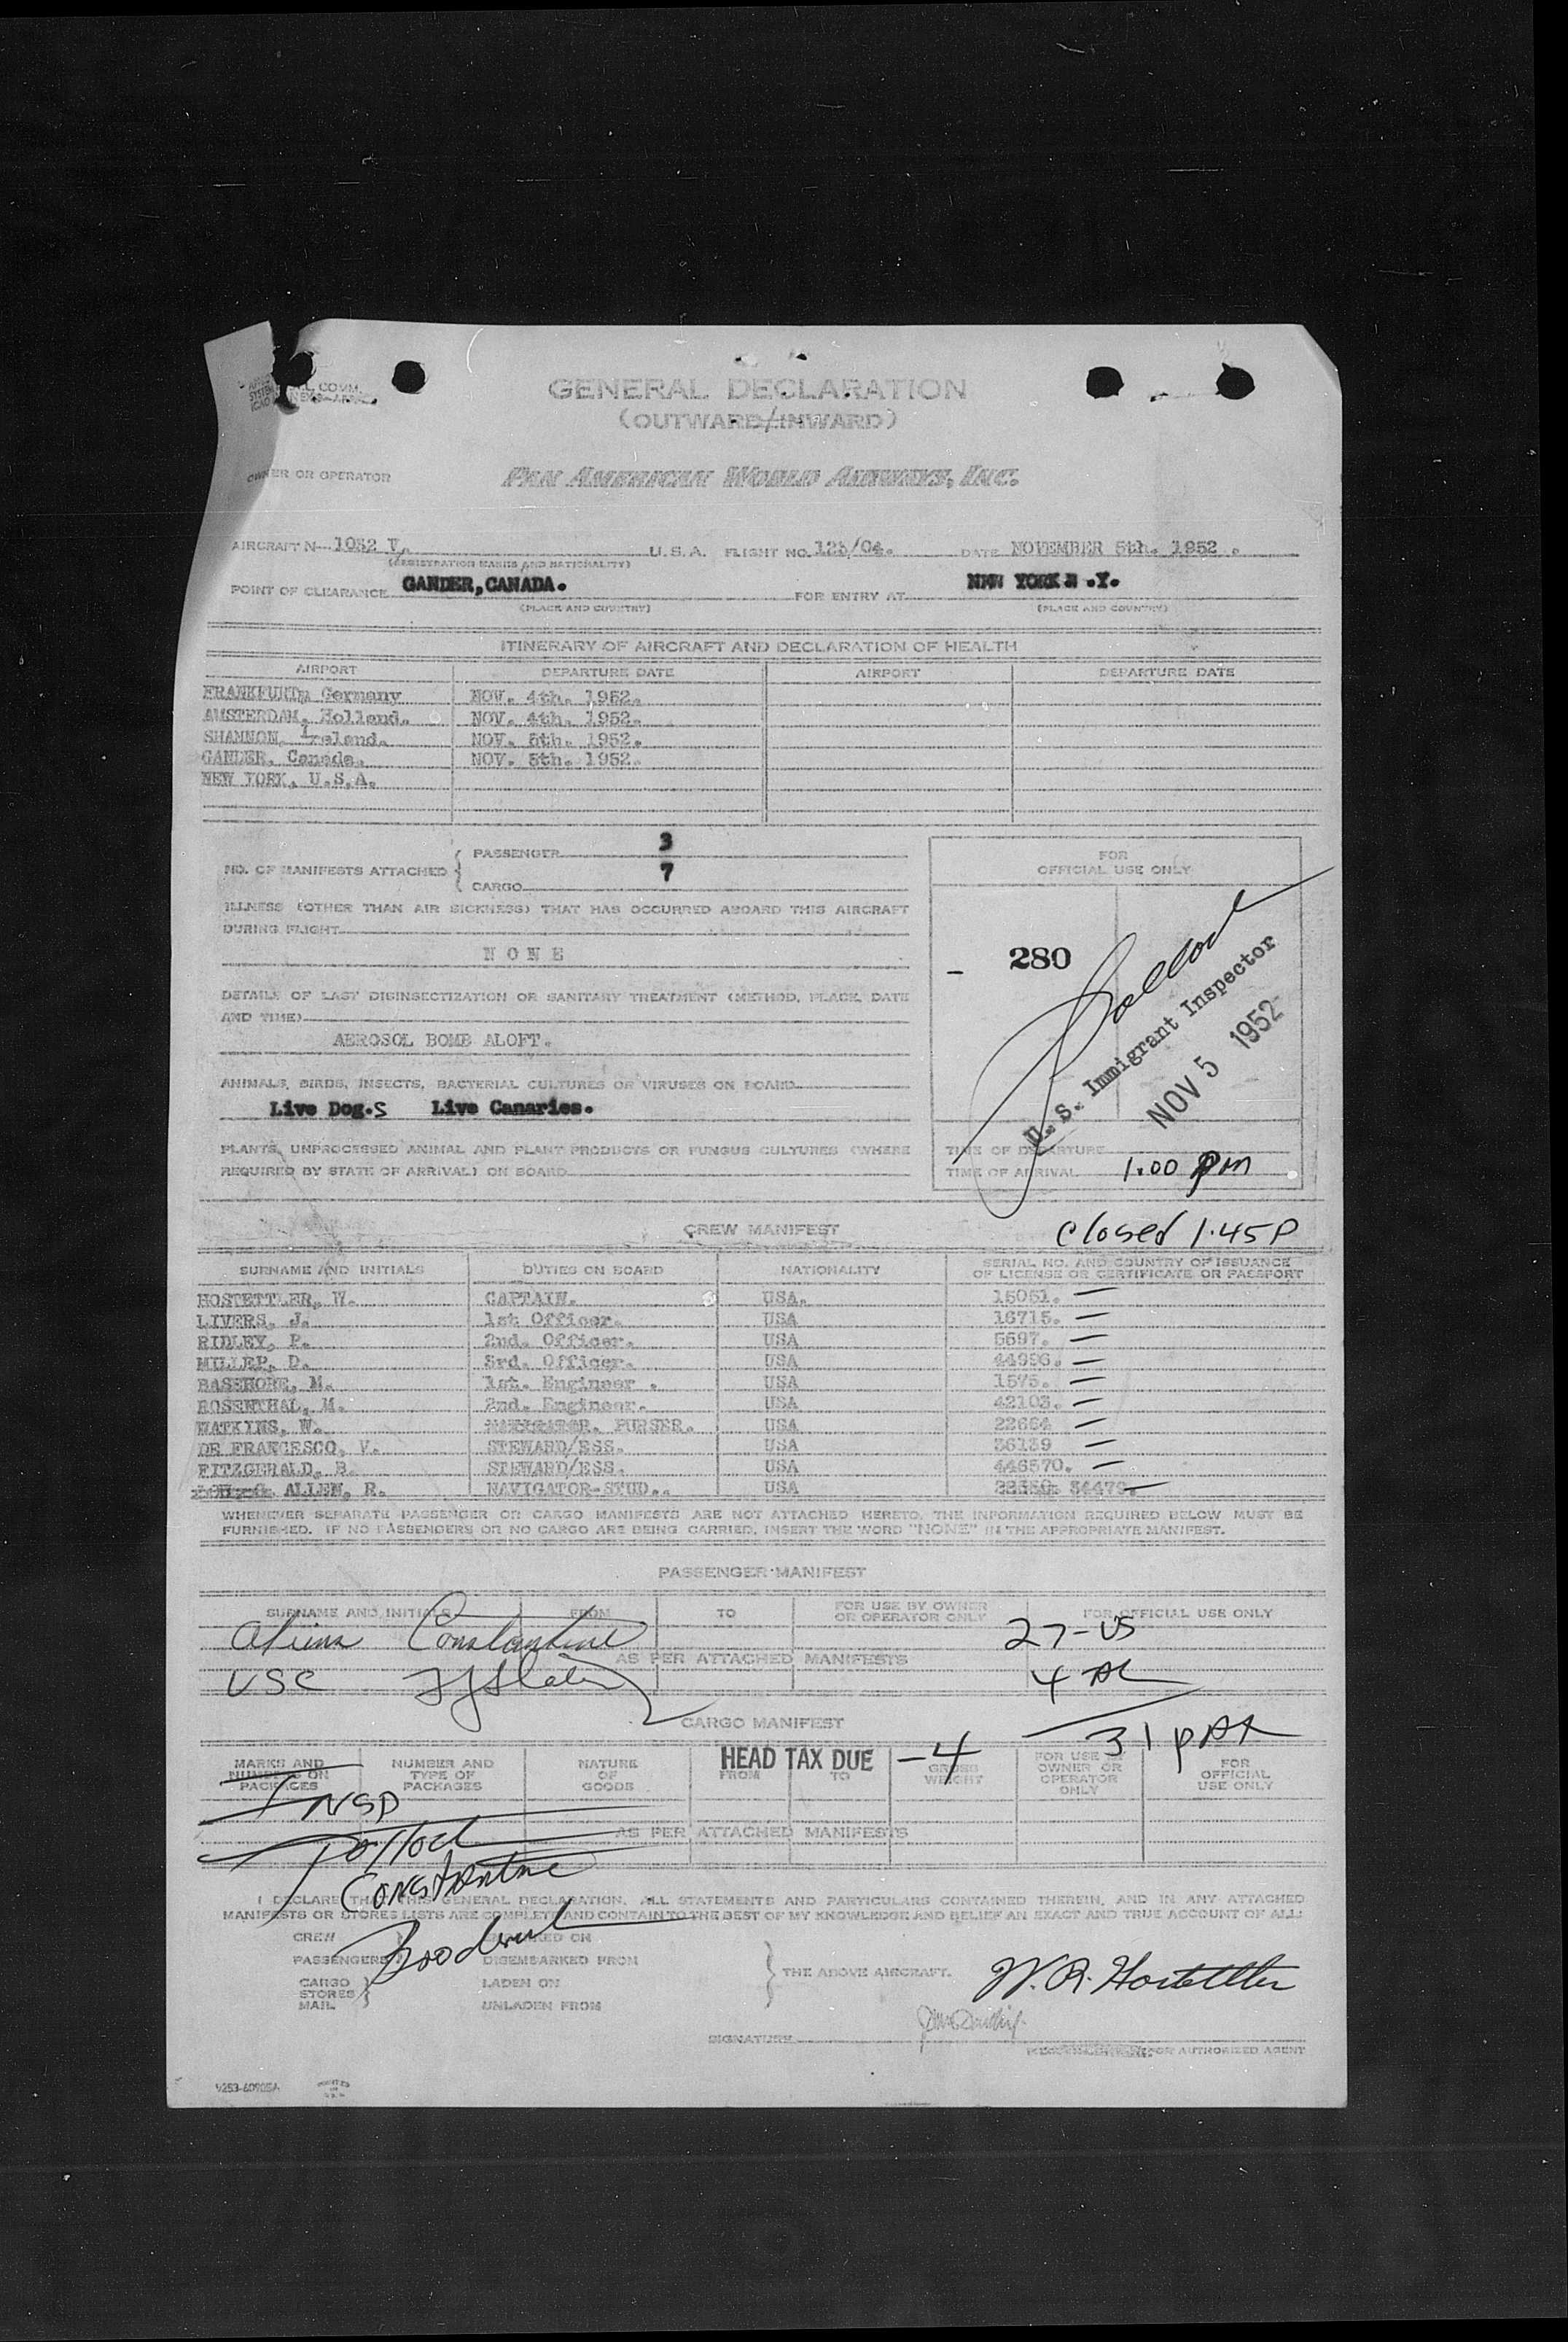 GENERAL DECLARATION
(OUTWARD/INWARD)
OWNER OR OPERATOR PAN AMERICAN WORLD AIRWAYS, INC.
AIRCRAFT N- 1032 V. U.S.A. FLIGHT NO. /04. DATE NOVEMBER 5th. 1952 .
(REGISTRATION MARKS AND NATIONALITY)
POINT OF CLEARANCE GANDER, CANADA. FOR ENTRY AT NEW YORK N.Y.
(PLACE AND COUNTRY) (PLACE AND COUNTRY)
ITINERARY OF AIRCRAFT AND DECLARATION OF HEALTH
AIRPORT DEPARTURE DATE AIRPORT DEPARTURE DATE
FRANKFURT, Germany NOV. 4th. 1952.
AMSTERDAM. Holland. NOV. 4th. 1952.
SHANNON. Ireland. NOV. 5th. 1952.
GANDER. Canada. NOV. 5th. 1952.
NEW YORK, U.S.A.
NO. OF MANIFESTS ATTACHED { PASSENGER 3
CARGO 7
FOR
OFFICIAL USE ONLY
ILLNESS (OTHER THAN AIR SICKNESS) THAT HAS OCCURRED ABOARD THIS AIRCRAFT
DURING FLIGHT
NONE
- 280
DETAILS OF LAST DISINSECTIZATION OR SANITARY TREATMENT (METHOD, PLACE, DATE
AND TIME)
AEROSOL BOMB ALOFT.
Pollock
U. S. Immigrant Inspector
NOV 5 1952
ANIMALS, BIRDS, INSECTS, BACTERIAL CULTURES OR VIRUSES ON BOARD
Live Dog.s Live Canaries.
PLANTS, UNPROCESSED ANIMAL AND PLANT PRODUCTS OR FUNGUS CULTURES (WHERE
REQUIRED BY STATE OF ARRIVAL) ON BOARD
TIME OF DEPARTURE
TIME OF ARRIVAL 1.00 pm
closed 1.45P
CREW MANIFEST
SURNAME AND INITIALS DUTIES ON BOARD NATIONALITY SERIAL NO. AND COUNTRY OF ISSUANCE
OF LICENSE OR CERTIFICATE OR PASSPORT
HOSTETTLER, W. CAPTAIN. USA. 15051. —
LIVERS, J. 1st Officer. USA 16715. —
RIDLEY, P. 2nd. Officer. USA 5597. —
MILLER, D. 3rd. Officer. USA 44996. —
BASEHORE, M. 1st. Engineer . USA 1575. —
ROSENTHAL, M. 2nd. Engineer. USA 42103. —
WATKINS, W. NAVIGATOR. PURSER. USA 22664 —
DE FRANCESCO, V. STEWARD/ESS. USA 36139 —
FITZGERALD, B. STEWARD/ESS. USA 446570. —
ALLEN, R. NAVIGATOR-STUD.. USA 34479. —
WHENEVER SEPARATE PASSENGER OR CARGO MANIFESTS ARE NOT ATTACHED HERETO, THE INFORMATION REQUIRED BELOW MUST BE
FURNISHED. IF NO PASSENGERS OR NO CARGO ARE BEING CARRIED, INSERT THE WORD "NONE" IN THE APPROPRIATE MANIFEST.
PASSENGER MANIFEST
SURNAME AND INITIALS FROM TO FOR USE BY OWNER
OR OPERATOR ONLY FOR OFFICIAL USE ONLY
Aliens Constantine 27-US
AS PER ATTACHED MANIFESTS
USC 4 AL
CARGO MANIFEST
31 pax
HEAD TAX DUE -4
MARKS AND
NUMBERS ON
PACKAGES NUMBER AND
TYPE OF
PACKAGES NATURE
OF
GOODS FROM TO GROSS
WEIGHT FOR USE BY
OWNER OR
OPERATOR
ONLY FOR
OFFICIAL
USE ONLY
INSP
AS PER ATTACHED MANIFESTS
Pollock
Constantine
I DECLARE THAT THIS GENERAL DECLARATION, ALL STATEMENTS AND PARTICULARS CONTAINED THEREIN, AND IN ANY ATTACHED
MANIFESTS OR STORES LISTS ARE COMPLETE AND CONTAIN TO THE BEST OF MY KNOWLEDGE AND BELIEF AN EXACT AND TRUE ACCOUNT OF ALL:
CREW
PASSENGERS DISEMBARKED FROM
CARGO LADEN ON
STORES
MAIL UNLADEN FROM
THE ABOVE AIRCRAFT. W. R. Hostettler
SIGNATURE
OR AUTHORIZED AGENT
PRINTED
IN
U.S.A.